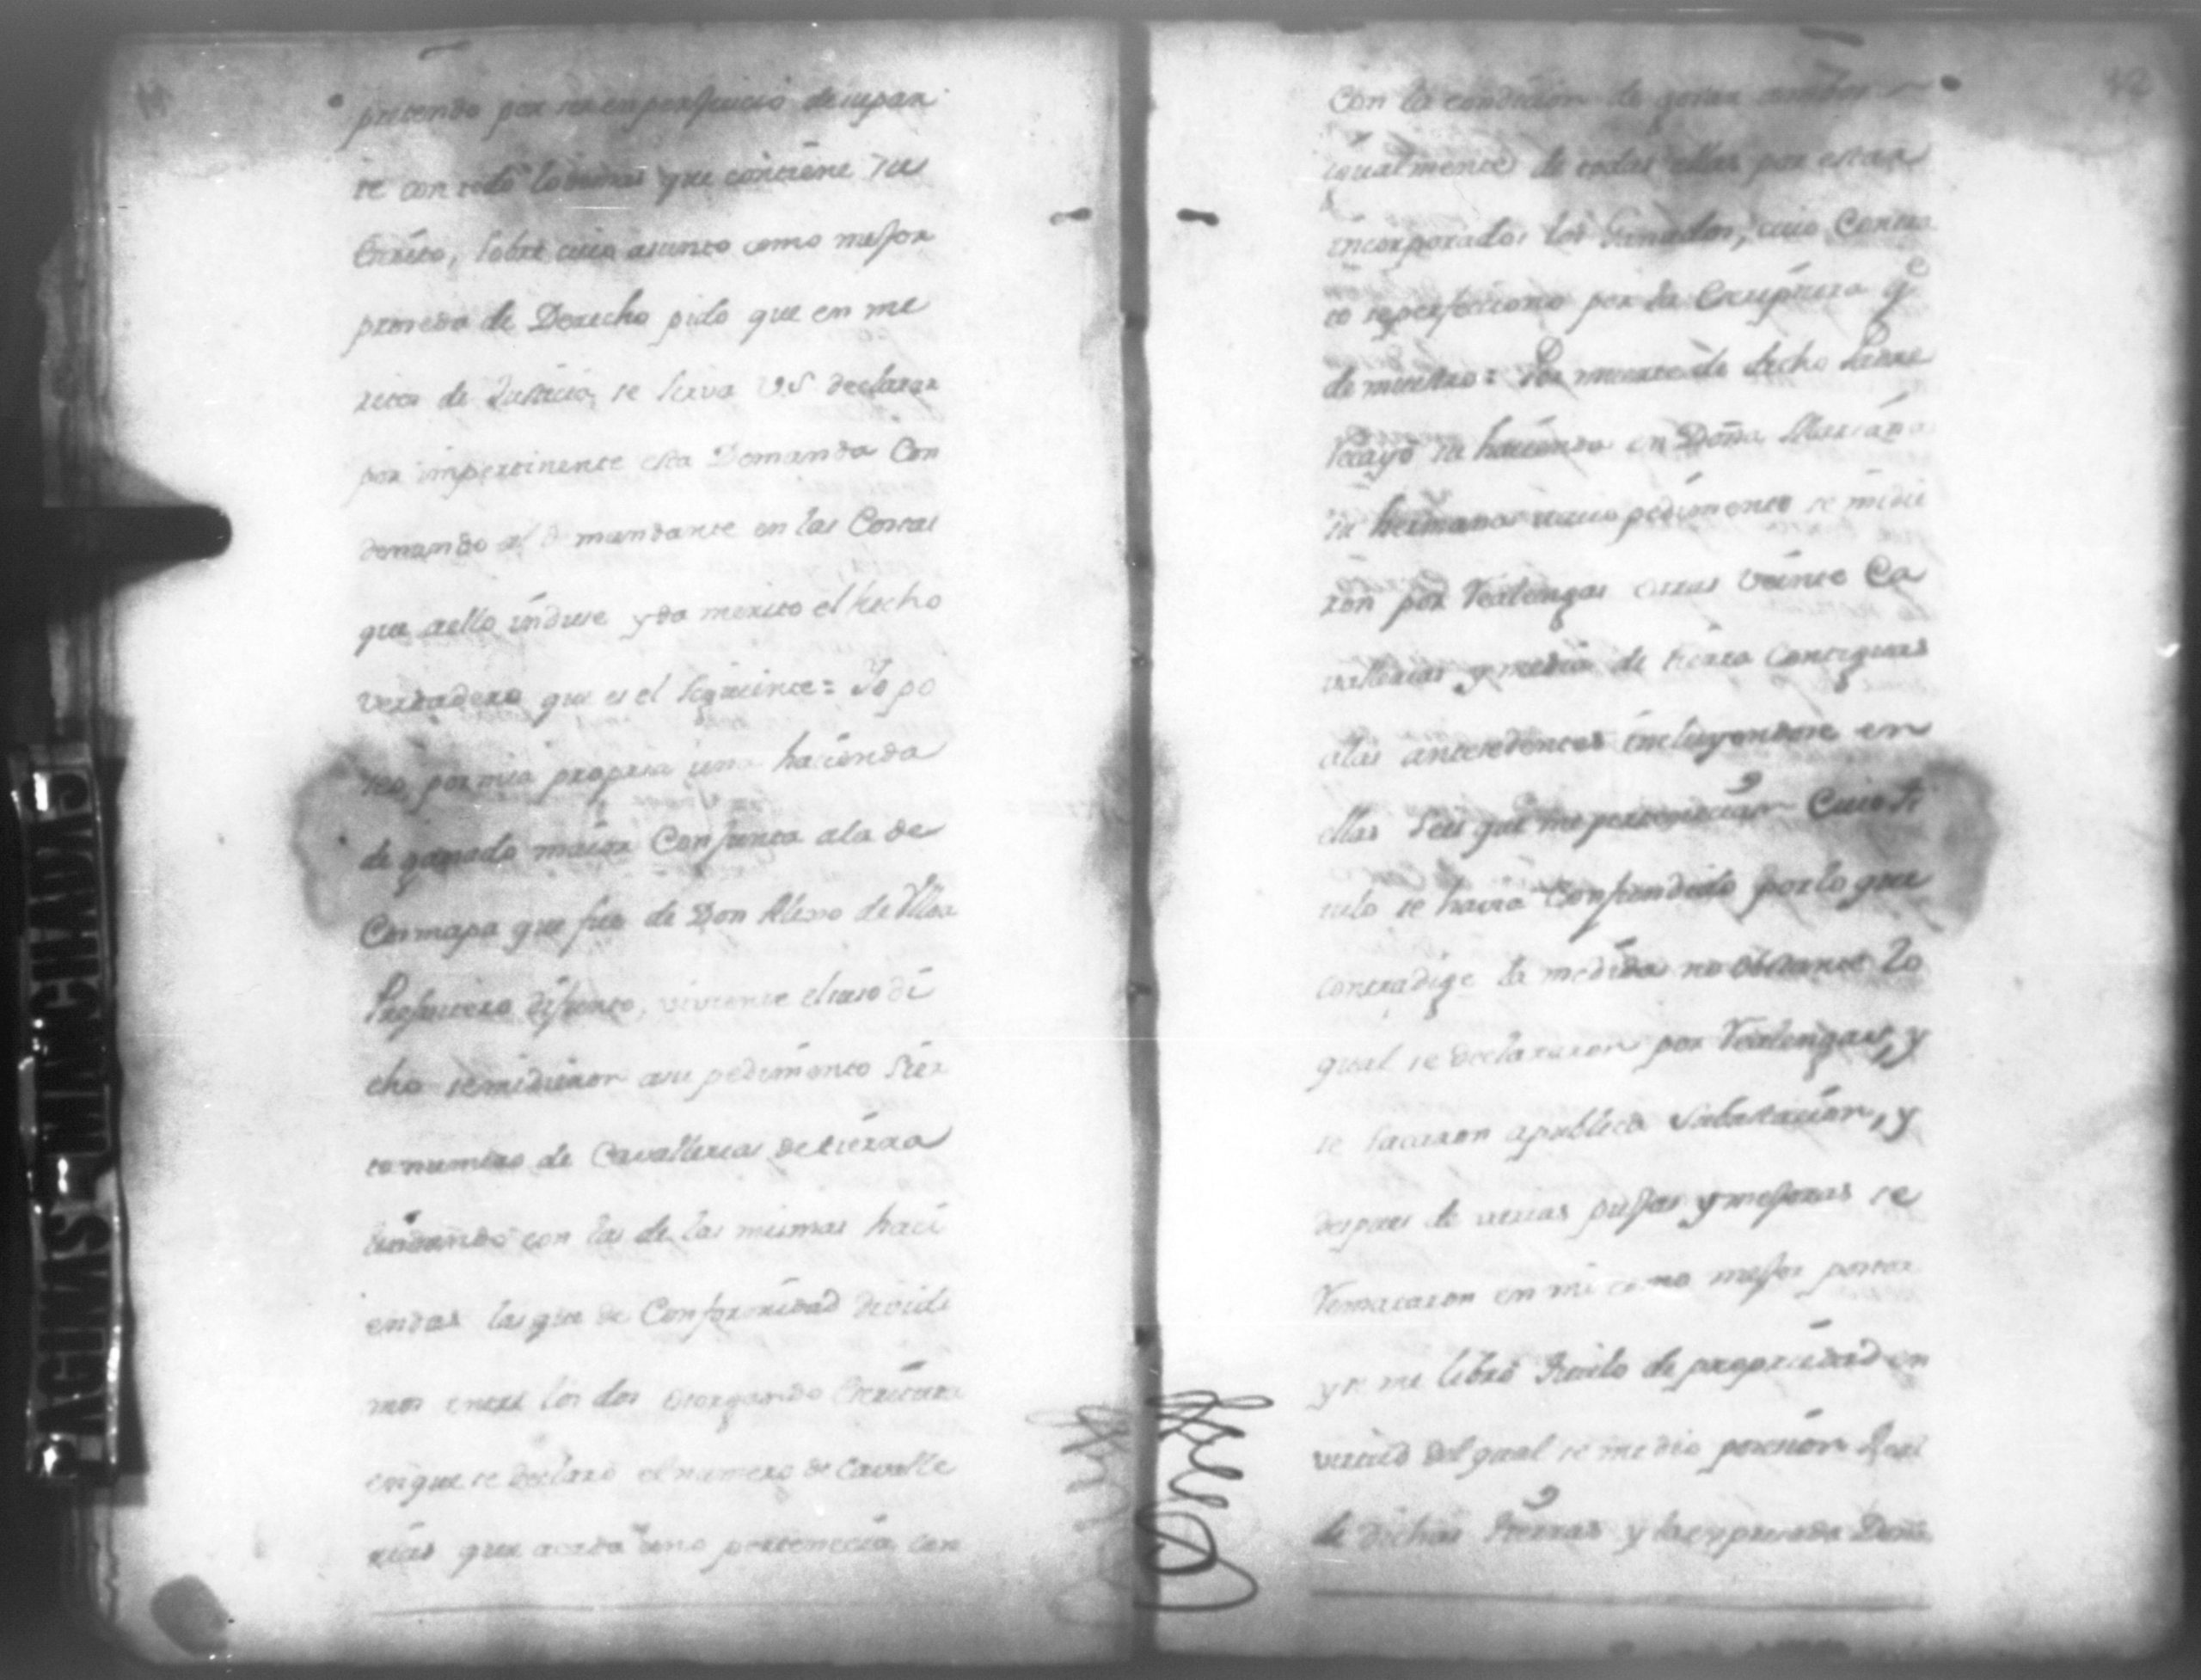 pretendo por ser en perjuicio de su par
te con todo lo demas que contiene su
Escrito, sobre cuio asunto como mejor
proceda de Derecho pido que en me
ritos de Justicia, se sirva VS declarar
por impertinente esta Demanda Con
denando al demandante en las Costas
que aello induse y da merito el hecho
verdadero que es el siguiente = Yo po
seo por mia propria una hacienda
de ganado maior Conjunta ala de
Cosmapa que fue de Don Alexo de Ulloa
Presvitero difunto, viviente el suso di
cho se midieron asu pedimento Sier
to numero de Cavallerias de tierra
lindando con las de las mismas haci
endas las que de Conformidad dividi
mos entre los dos otorgando Escritura
en que se declaró el numero de Cavalle
rias que acada uno pertenecia con
42
Con la condicion de gosar ambos
igualmente de todas ellas por estar
incorporados los Ganados, cuio Contra
to se perfecciono por la Escriptura qe
de muestro = Por muerte de dicho Padre
Recayó su hacienda en Doña Mariana
su hermana acuio pedimento se midie
ron por Realengas otras veinte Ca
vallerias y media de tierra Contiguas
alas antecedentes incluyendose en
ellas seis que me pertenecian Cuio ti
tulo se havia Confundido por lo que
contradige la medida no obstante lo
qual se declararon por Realengas, y
se sacaron apublica Subastacion, y
despues de varias pujas y mejoras se
Remataron en mi como mejor postor
y se me libró Titulo de propriedad en
virtud del qual se me dio posecion Real
de dichas tierras y la expresada Doña
AGINAS MANCHADAS